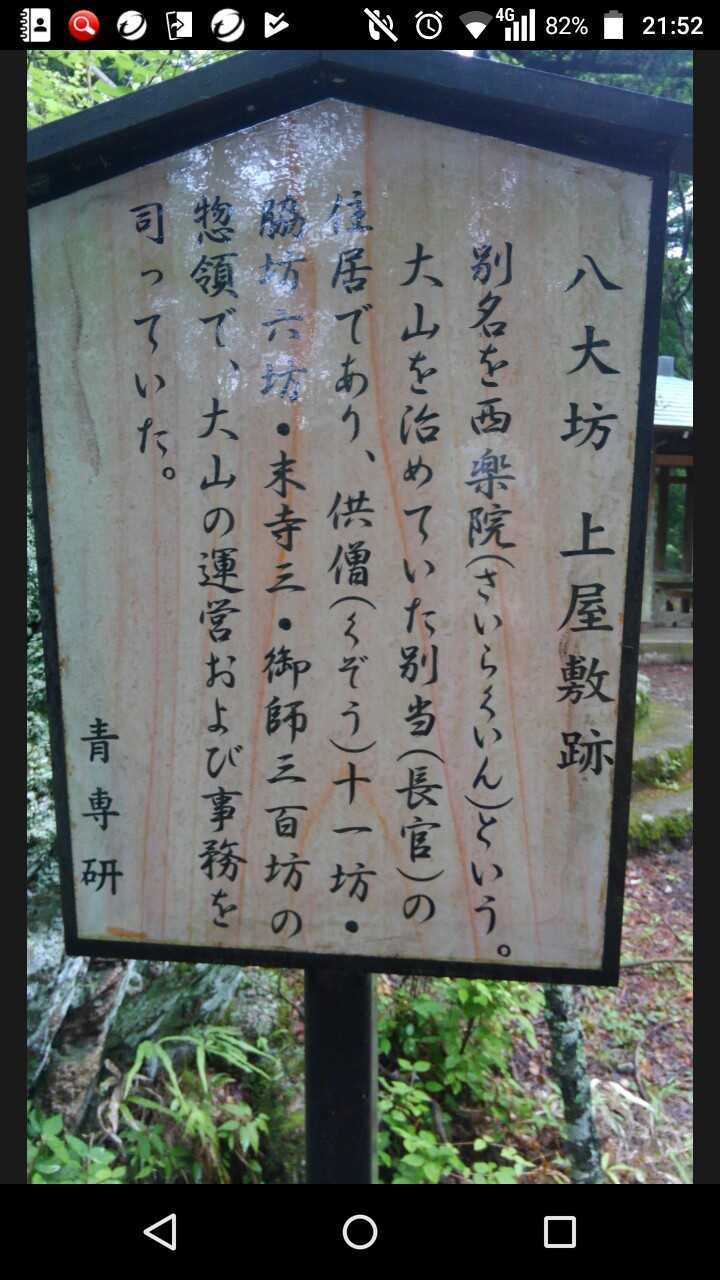 4G 82% 21:52
八大坊 上屋敷跡
別名を西楽院(さいらくいん)という。
大山を治めていた別当(長官)の
住居であり、供僧(くぞう)十一坊・
脇坊六坊・末寺三・御師三百坊の
惣領で、大山の運営および事務を
司っていた。
青専研